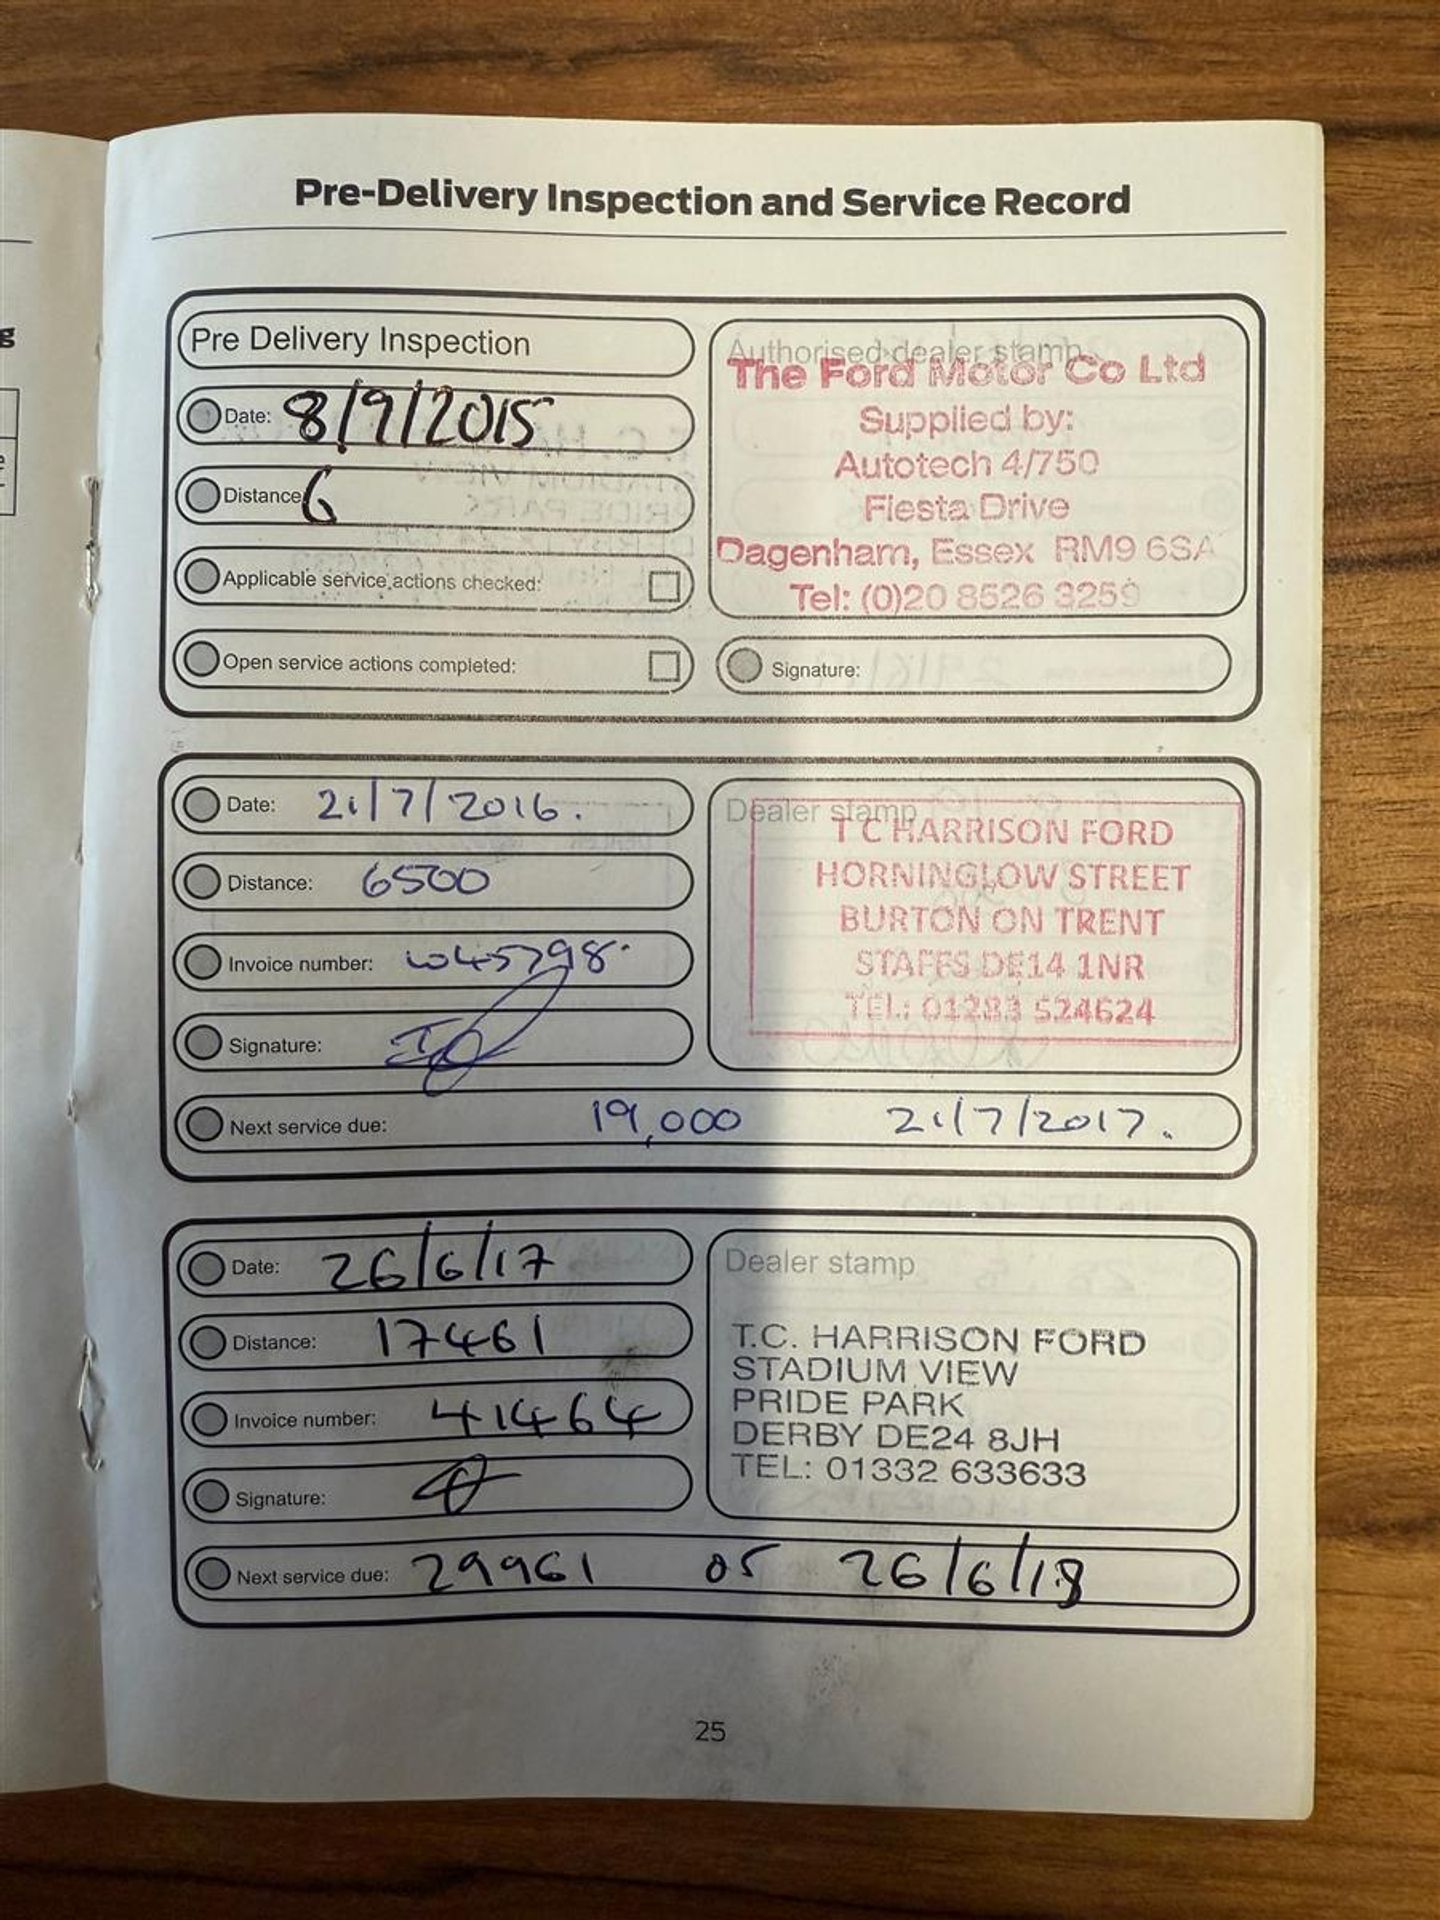 Pre-Delivery Inspection and Service Record
Pre Delivery Inspection
Date: 8/9/2015
Distance: 6
Applicable service actions checked:
Open service actions completed:
Authorised dealer stamp
The Ford Motor Co Ltd
Supplied by:
Autotech 4/750
Fiesta Drive
Dagenham, Essex RM9 6SA
Tel: (0)20 8526 3259
Signature:
Date: 21/7/2016.
Distance: 6500
Invoice number: W045798
Signature:
Dealer stamp
T C HARRISON FORD
HORNINGLOW STREET
BURTON ON TRENT
STAFFS DE14 1NR
TEL: 01283 524624
Next service due: 19,000 21/7/2017.
Date: 26/6/17
Distance: 17461
Invoice number: 41464
Signature:
Dealer stamp
T.C. HARRISON FORD
STADIUM VIEW
PRIDE PARK
DERBY DE24 8JH
TEL: 01332 633633
Next service due: 29961 or 26/6/18
25